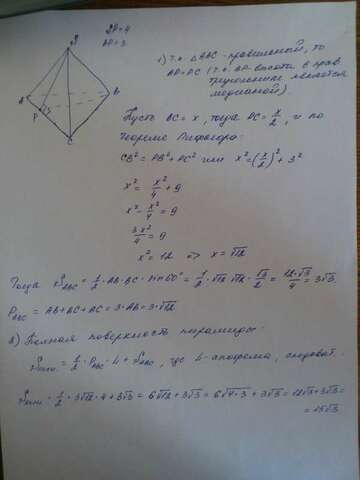 S
DP=4
BP=3
A
B
P
C
1) Т.к. △ABC - правильный, то
AP=PC (т.к. BP высота, в прав.
треугольнике является
медианой).
Пусть BC = x, тогда PC = x/2, и по
теореме Пифагора:
CB² = PB² + PC² или x² = (x/2)² + 3²
x² = x²/4 + 9
x² - x²/4 = 9
3x²/4 = 9
x² = 12 => x = √12
Тогда S_ABC = 1/2 · AB · BC · sin60° = 1/2 · √12 · √12 · √3/2 = 12·√3/4 = 3√3
P_ABC = AB + BC + AC = 3·AB = 3√12
2) Полная поверхность пирамиды:
S = 1/2 · P_ABC · L + S_ABC, где L - апофема, следоват.
S = 1/2 · 3√12 · 4 + 3√3 = 6√12 + 3√3 = 6√4·3 + 3√3 = 12√3 + 3√3 =
= 15√3